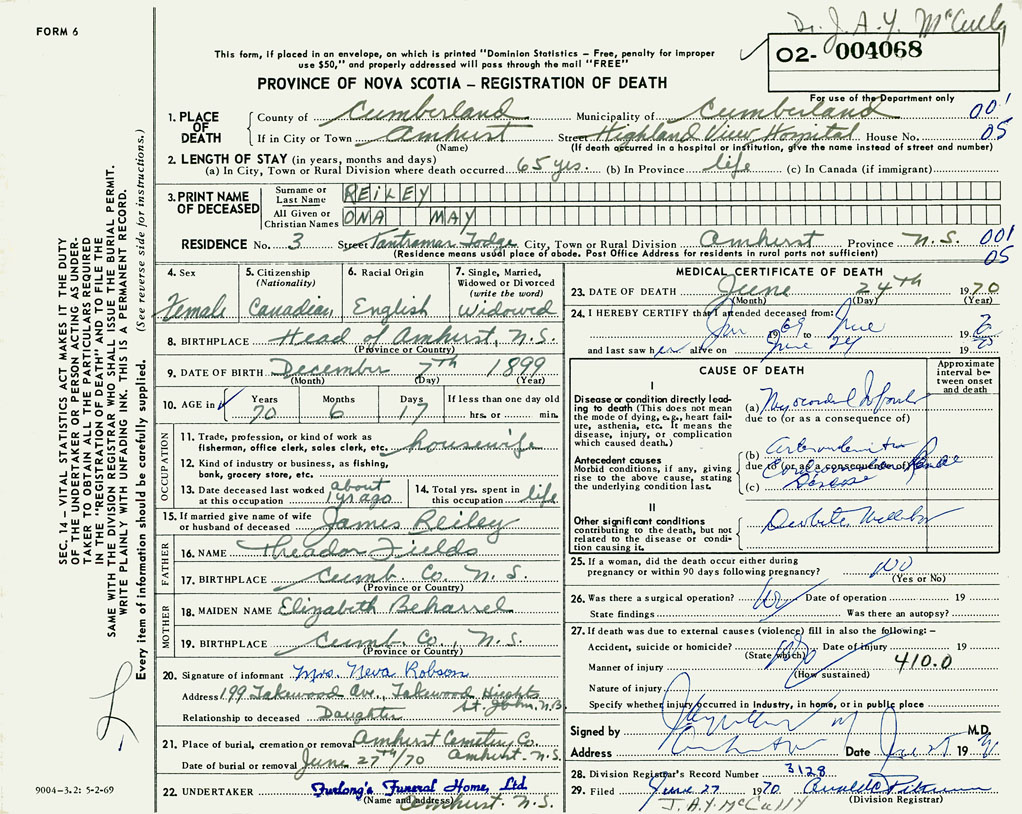 Dr. J. A. Y. McCully
FORM 6
O2- 004068
This form, if placed in an envelope, on which is printed "Dominion Statistics – Free, penalty for improper
use $50," and properly addressed will pass through the mail "FREE"
PROVINCE OF NOVA SCOTIA – REGISTRATION OF DEATH
For use of the Department only
1. PLACE OF DEATH
County of Cumberland Municipality of Cumberland 001
If in City or Town Amherst Street Highland View Hospital House No. 05
(Name) (If death occurred in a hospital or institution, give the name instead of street and number)
2. LENGTH OF STAY (in years, months and days)
(a) In City, Town or Rural Division where death occurred 65 yrs. (b) In Province life (c) In Canada (if immigrant)
3. PRINT NAME OF DECEASED
Surname or Last Name REILEY
All Given or Christian Names ONA MAY
RESIDENCE No. 3 Street Tantramar Lodge City, Town or Rural Division Amherst Province N.S. 001
(Residence means usual place of abode. Post Office Address for residents in rural parts not sufficient) 05
4. Sex
Female
5. Citizenship (Nationality)
Canadian
6. Racial Origin
English
7. Single, Married, Widowed or Divorced (write the word)
Widowed
8. BIRTHPLACE Head of Amherst, N.S.
(Province or Country)
9. DATE OF BIRTH December 7th 1899
(Month) (Day) (Year)
10. AGE in Years Months Days If less than one day old
70 6 17 hrs. or min.
OCCUPATION
11. Trade, profession, or kind of work as
fisherman, office clerk, sales clerk, etc. housewife
12. Kind of industry or business, as fishing,
bank, grocery store, etc.
13. Date deceased last worked at this occupation about 1 yr ago
14. Total yrs. spent in this occupation life
15. If married give name of wife
or husband of deceased James Reiley
FATHER
16. NAME Theador Fields
17. BIRTHPLACE Cumb. Co. N.S.
(Province or Country)
MOTHER
18. MAIDEN NAME Elizabeth Beharrel
19. BIRTHPLACE Cumb. Co., N.S.
(Province or Country)
20. Signature of informant Mrs. Neva Robson
Address 199 Lakewood Ave., Lakewood Heights
St. John, N.B.
Relationship to deceased Daughter
21. Place of burial, cremation or removal Amherst Cemetery Co.
Amherst N.S.
Date of burial or removal June 27th/70
22. UNDERTAKER Furlong's Funeral Home, Ltd
(Name and address) Amherst. N.S.
MEDICAL CERTIFICATE OF DEATH
23. DATE OF DEATH June 24th 1970
(Month) (Day) (Year)
24. I HEREBY CERTIFY that I attended deceased from:
Jan 1969 to June 19
and last saw her alive on June 24 19
CAUSE OF DEATH
Approximate interval between onset and death
I
Disease or condition directly leading to death (This does not mean the mode of dying, e.g., heart failure, asthenia, etc. It means the disease, injury, or complication which caused death.)
(a)
due to (or as a consequence of)
Antecedent causes
Morbid conditions, if any, giving rise to the above cause, stating the underlying condition last.
(b)
due to (or as a consequence of)
(c) Disease
II
Other significant conditions
contributing to the death, but not related to the disease or condition causing it.
25. If a woman, did the death occur either during
pregnancy or within 90 days following pregnancy? NO
(Yes or No)
26. Was there a surgical operation? No Date of operation 19
State findings Was there an autopsy?
27. If death was due to external causes (violence) fill in also the following: –
Accident, suicide or homicide? Date of injury 19
(State which)
Manner of injury 410.0
(How sustained)
Nature of injury
Specify whether injury occurred in Industry, in home, or in public place
Signed by M.D.
Address Amherst Date 19
28. Division Registrar's Record Number 3128
29. Filed June 27 1970
J. A. Y. McCully (Division Registrar)
SEC. 14 – VITAL STATISTICS ACT MAKES IT THE DUTY
OF THE UNDERTAKER OR PERSON ACTING AS UNDER-
TAKER TO OBTAIN ALL THE PARTICULARS REQUIRED
IN THE "REGISTRATION OF DEATH" AND TO FILE THE
SAME WITH THE DIVISION REGISTRAR WHO SHALL ISSUE THE BURIAL PERMIT.
WRITE PLAINLY WITH UNFADING INK. THIS IS A PERMANENT RECORD.
Every item of information should be carefully supplied. (See reverse side for instructions.)
9004–3.2: 5-2-69